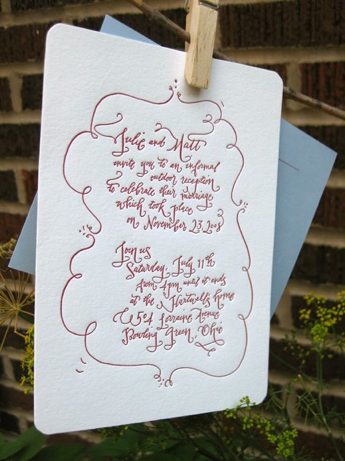 Julie and Matt
invite you to an informal
outdoor reception
to celebrate their marriage
which took place
on November 23, 2008
Join us
Saturday, July 11th
from 4pm until it ends
at the Hartwells home
Lorraine Avenue
Bowling Green, Ohio